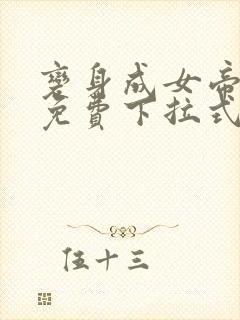 變身成女帝
免費下拉式
伍十三